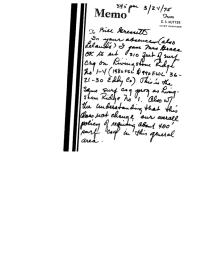 345 pm 3/24/75
Memo
From
To Bill Gressett
In your absence (also
I gave Mrs Grace
OK to set 310 feet of surf
csg on Livingston Ridge
No 1-Y (1980 FSL 36-
21-30 Eddy Co) This is the
same surf csg prog as Living-
ston Ridge No 1. Also w/
the understanding that this
does not change our overall
policy of requiring about 400'
surf csg in this general
area.